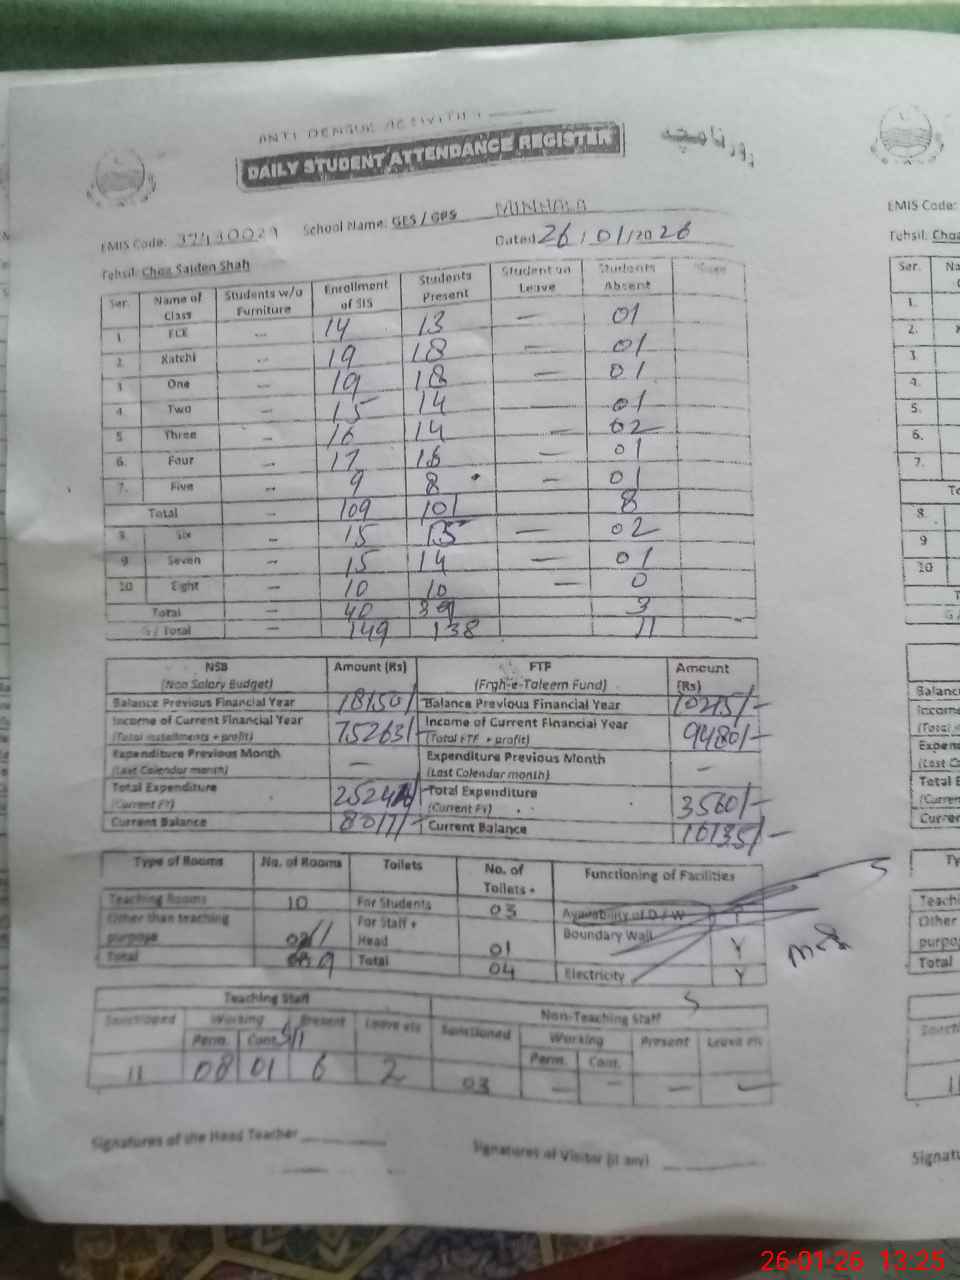 ANTI DENGUE ACTIVITY
DAILY STUDENT ATTENDANCE REGISTER روزنامچہ
EMIS Code: 37130029 School Name: GES / GPS MINHALA
Tehsil: Choa Saiden Shah Dated 26/01/2026
Ser. Name of Class Students w/o Furniture Enrollment of SIS Students Present Student on Leave Students Absent
1. ECE — 14 13 — 01
2. Katchi — 19 18 — 01
3. One — 19 18 — 01
4. Two — 15 14 — 01
5 Three — 16 14 — 02
6. Four — 17 16 — 01
7. Five — 9 8 — 01
Total — 109 101 8
8. Six — 15 15 — 02
9 Seven — 15 14 — 01
10 Eight — 10 10 — 0
Total — 40 39 3
G / Total — 149 138 11
NSB (Non Salary Budget) Amount (Rs) FTF (Frgh-e-Taleem Fund) Amount (Rs)
Balance Previous Financial Year 18150/- Balance Previous Financial Year 10215/-
Income of Current Financial Year (Total installments + profit) 75263/- Income of Current Financial Year (Total FTF + profit) 9480/-
Expenditure Previous Month (Last Calendar month) — Expenditure Previous Month (Last Calendar month) —
Total Expenditure (Current FY) Total Expenditure (Current FY) 3560/-
Current Balance Current Balance 16135/-
Type of Rooms No. of Rooms Toilets No. of Toilets Functioning of Facilities
Teaching Rooms 10 For Students 03 Availability of D/W
Other than teaching purpose For Staff + Head 01 Boundary Wall Y
Total Total 04 Electricity Y
Teaching Staff Non-Teaching Staff
Sanctioned Working Present Leave etc Sanctioned Working Present Leave etc
Perm. Cont. Perm. Cont.
11 08 01 6 2 03 — — — —
Signatures of the Head Teacher Signatures of Visitor (if any)
EMIS Code:
Tehsil: Choa
Ser. Na
1.
2.
3.
4.
5.
6.
7.
8.
9
10
26-01-26 13:25